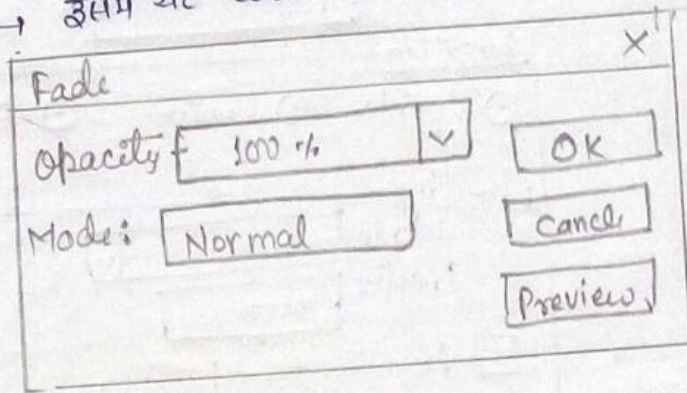 → इसमे
Fade X
Opacity 100 % OK
Mode: Normal Cancle
Preview